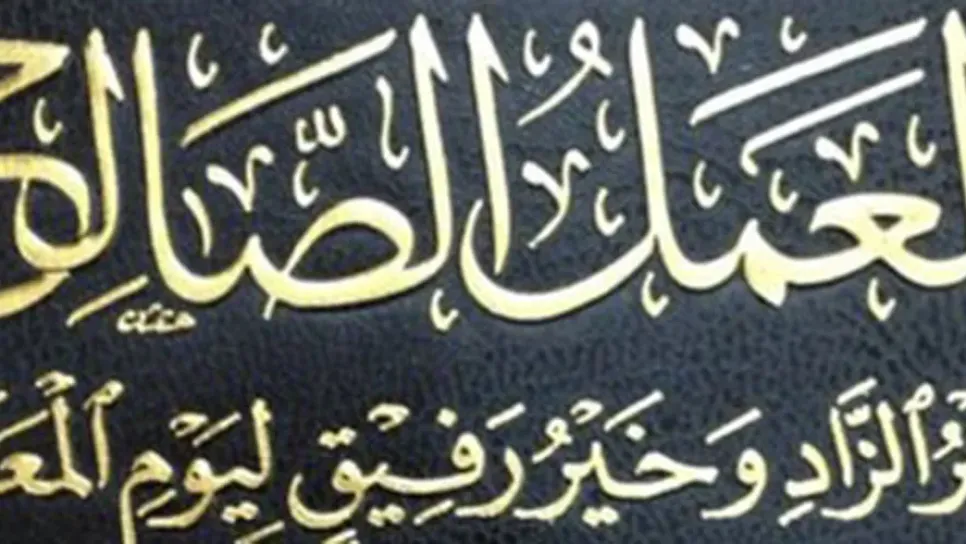 لعَمَلُ الصَّالِح
رُ ٱلزَّادِ وَخَيْرُ رَفِيقٍ لِيَوْمِ ٱلْمَعَ